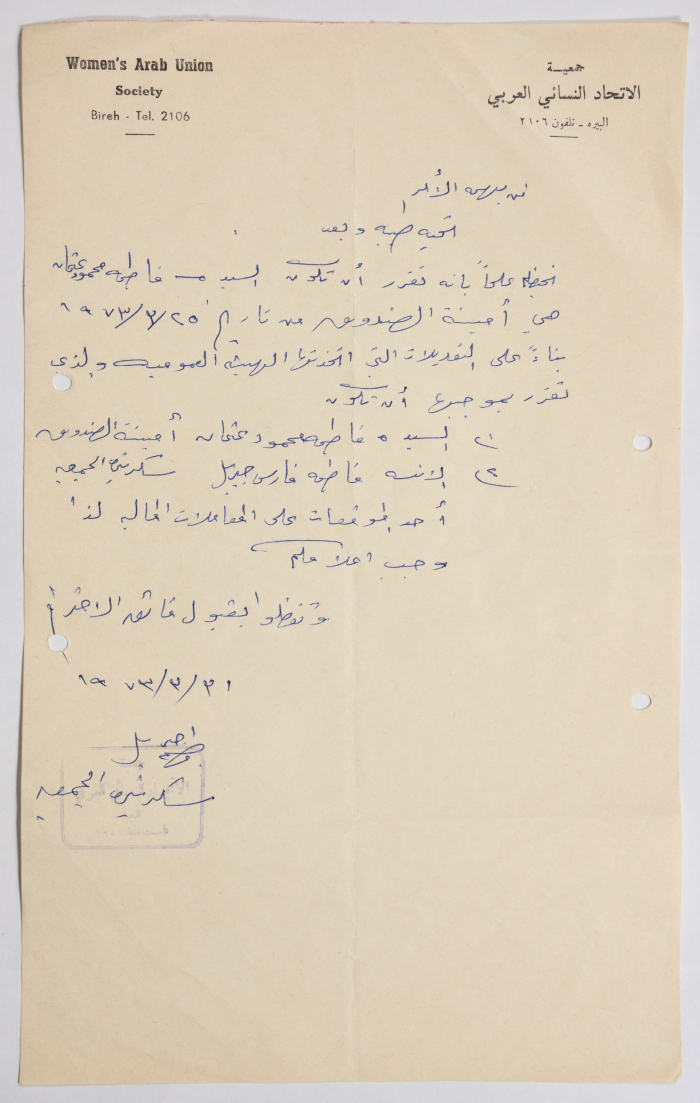 Women's Arab Union
Society
Bireh - Tel. 2106
جمعيـة
الاتحاد النسائي العربي
البيره - تلفون ٢١٠٦
لمن يهمه الأمر
تحيه طيبه وبعد
نحيطكم علماً بانه تقرر أن تكون السيده فاطمه محمود عثمان
هي أمينة الصندوق من تاريخ ١٩٧٣/٣/٢٥
بناءً على التعديلات التي اتخذتها الهيئة العموميه والذي
تقرر بموجبها أن تكون
١) السيده فاطمه محمود عثمان أمينة الصندوق
٢) الانسه فاطمه فارس جبريل سكرتيرة الجمعيه
أحد الموقعات على المعاملات الماليه لذا
وجب اعلامكم
وتفضلوا بقبول فائق الاحترام
١٩٧٣/٣/٣١
سكرتيرة الجمعيه